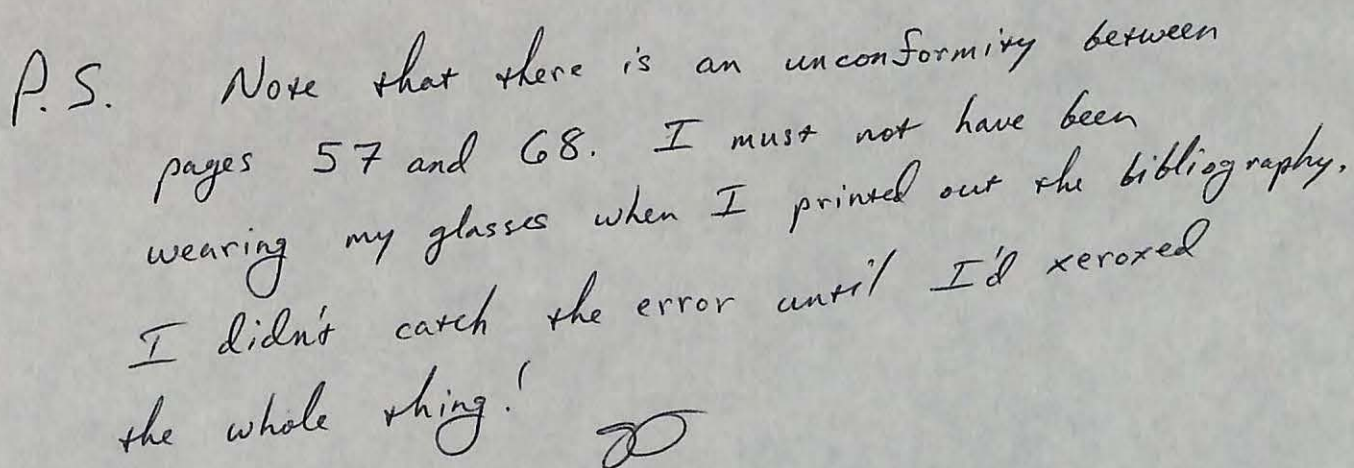 P.S. Note that there is an unconformity between
pages 57 and 68. I must not have been
wearing my glasses when I printed out the bibliography.
I didn't catch the error until I'd xeroxed
the whole thing!